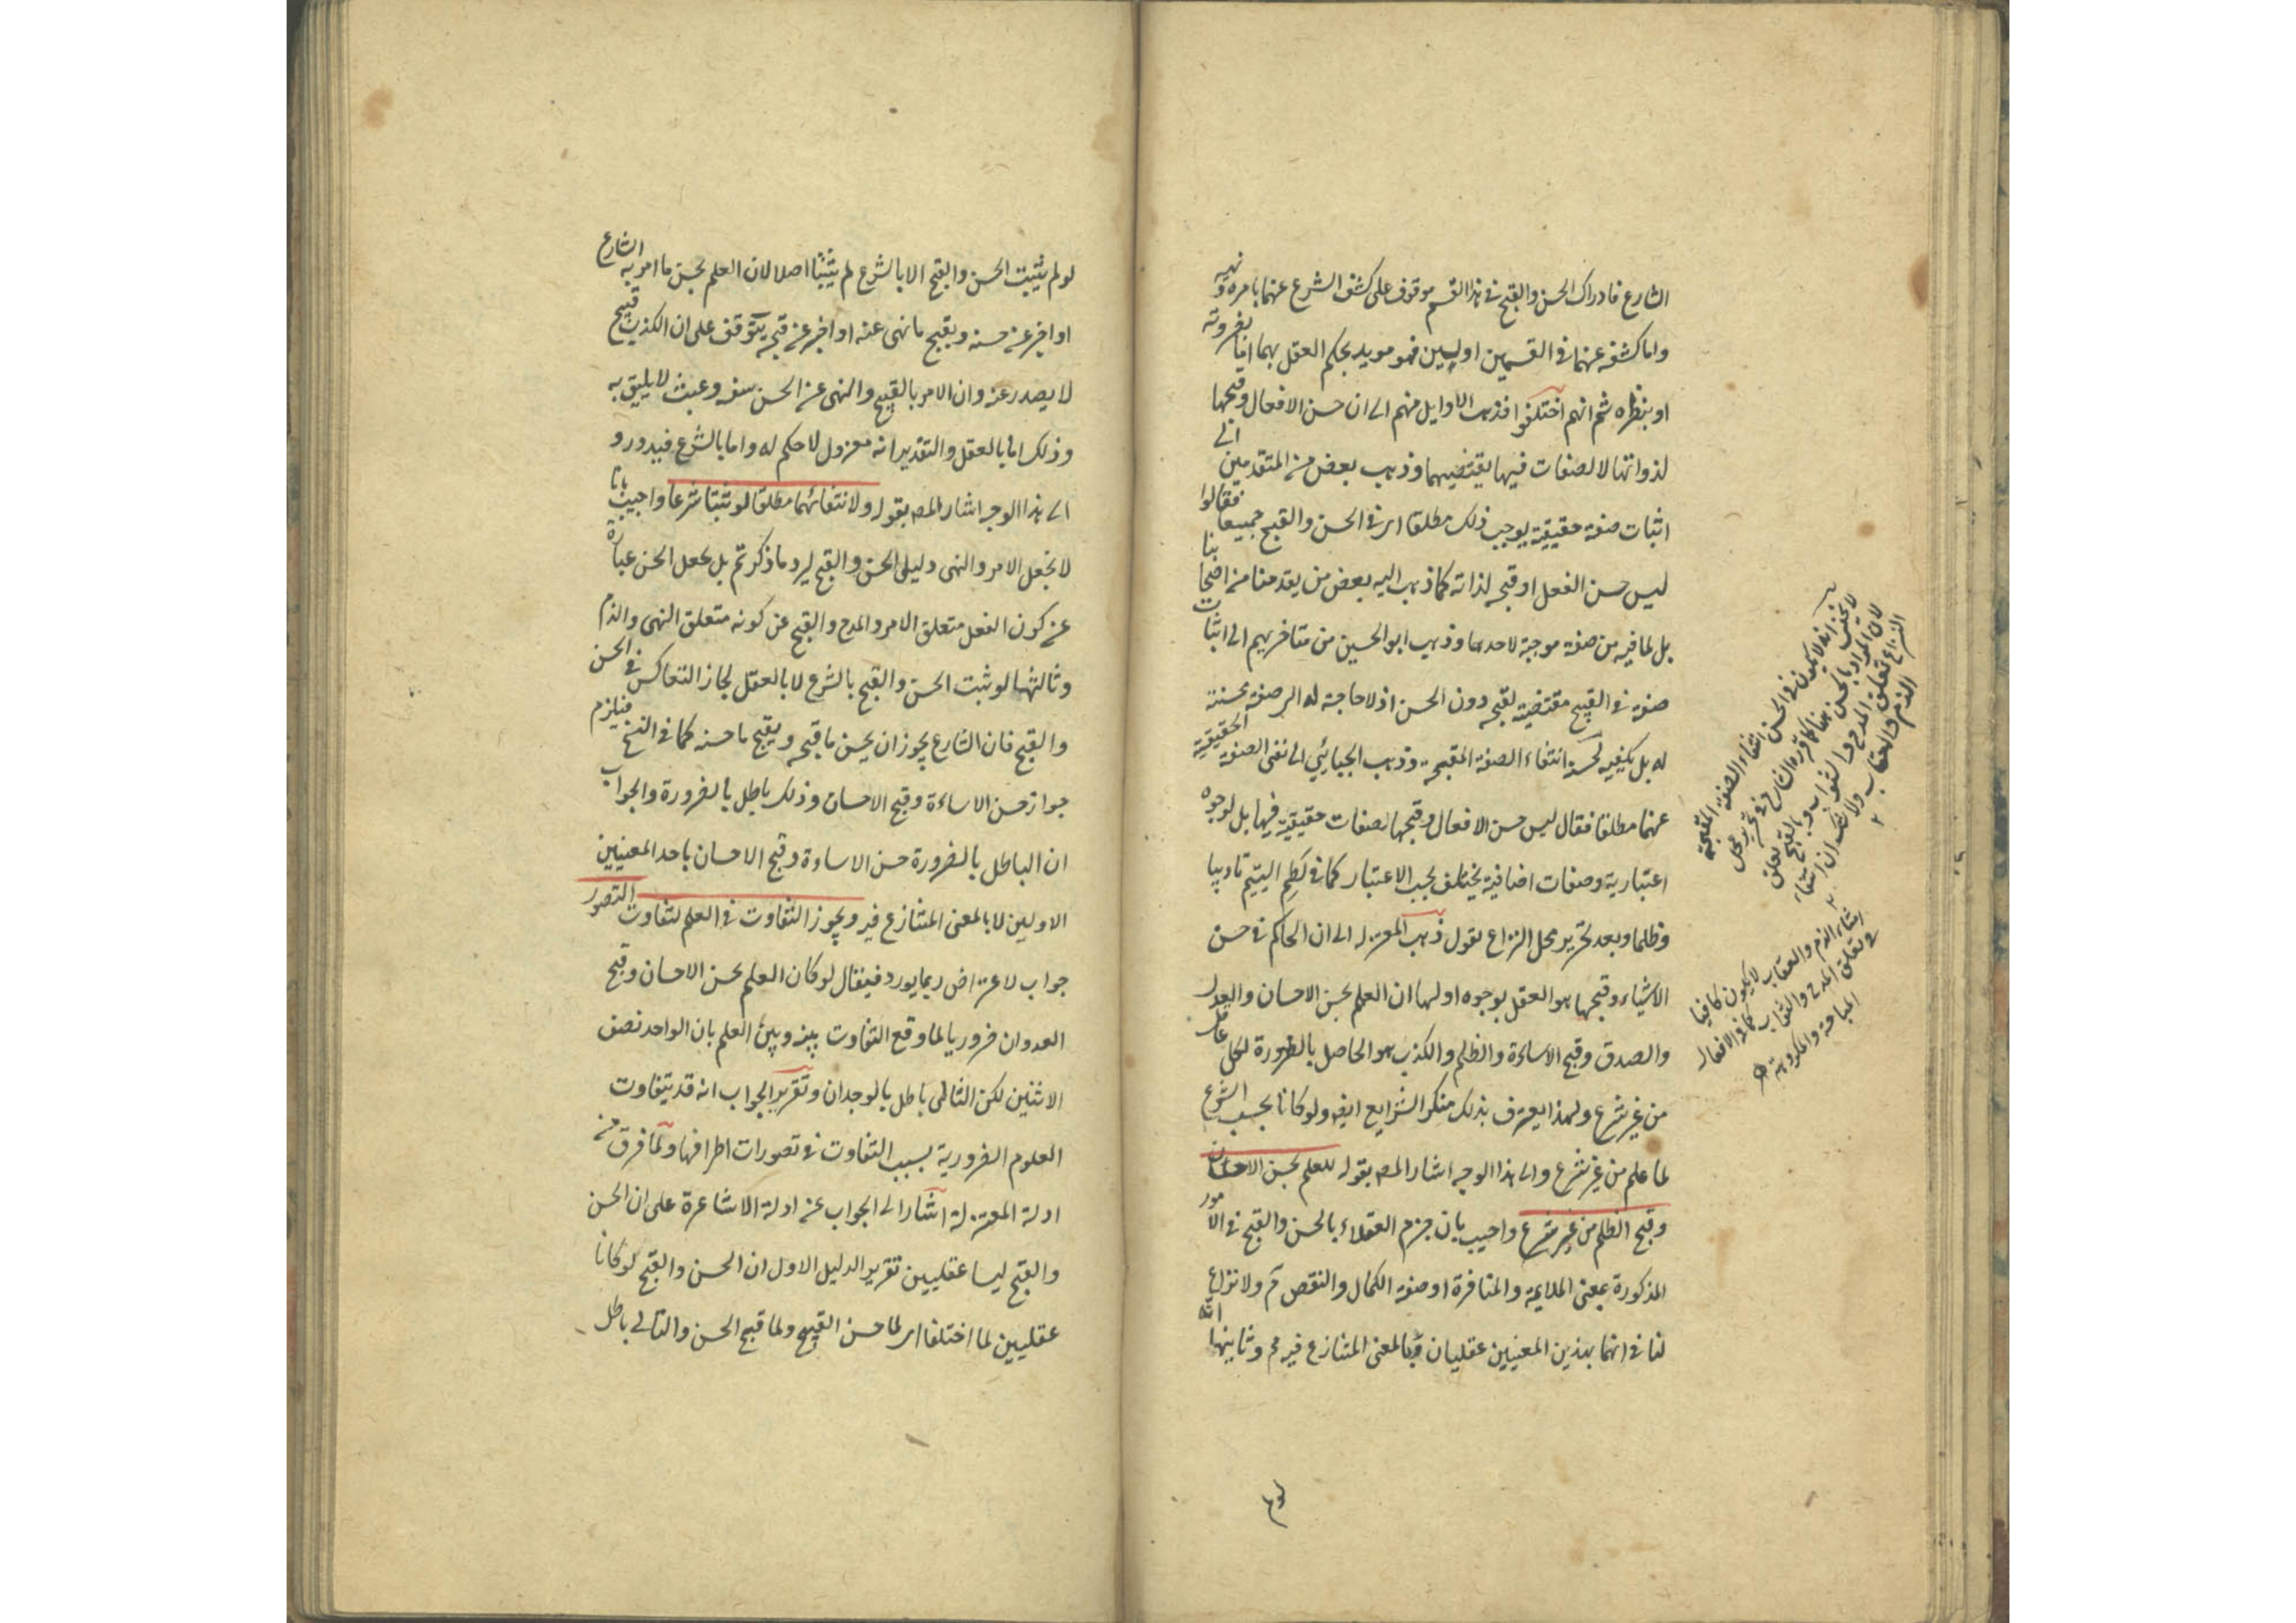 الشارع فادراك الحسن والقبح فى هذا القسم موقوف على كشف الشرع عنهما بامره ونهيه
واما كشفه عنهما فى القسمين اولين فهو مويد بحكم العقل بهما اما بضرورته
او بنظره ثم انهم اختلفوا فذهب الاوايل منهم الى ان حسن الافعال وقبحها
لذواتها لا لصفات فيها يقتضيهما وذهب بعض من المتقدمين الى
اثبات صفة حقيقية يوجب ذلك مطلقا اى فى الحسن والقبح جميعا فقالوا
ليس حسن الفعل او قبحه لذاته كما ذهب اليه بعض من يقدمنا من اصحابنا
بل لما فيه من صفة موجبة لاحدهما وذهب ابو الحسين من متاخريهم الى اثبات
صفة فى القبيح مقتضية لقبحه دون الحسن اذ لا حاجة له الى صفة محسنة
له بل يكفيه لحسنه انتفاء الصفة المقبحة وذهب الجبائيى الى نفى الصفة الحقيقية
عنهما مطلقا فقال ليس حسن الافعال وقبحها لصفات حقيقية فيها بل لوجوه
اعتبارية وصفات اضافية يختلف بحسب الاعتبار كما فى لطم اليتيم تاديبا
وظلما وبعد تحرير محل النزاع نقول ذهب المعتزله الى ان الحاكم فى حسن
الاشياء وقبحها هو العقل بوجوه اولها ان العلم بحسن الاحسان والعدل
والصدق وقبح الاساءة والظلم والكذب هو الحاصل بالضرورة لكل عاقل
من غير شرع ولهذا يعترف بذلك منكر الشرايع ايضا ولو كانا بحسب الشرع
لما علم من غير شرع والى هذا الوجه اشار المصه بقوله للعلم بحسن الاحسان
وقبح الظلم من غير شرع واجيب بان جزم العقلاء بالحسن والقبح فى الامور
المذكورة بمعنى الملايمة والمنافرة او صفة الكمال والنقص م ولا نزاع
لنا فى انهما بهذين المعنيين عقليان وبالمعنى المتنازع فيه مم وثانيها انه
لا يخفى انه لا يكون فى الحسن انتفاء الصفة المقبحة
لان المراد بالحسن هنا كما قرره الشارح فى تحرير محل
النزاع تعلق المدح والثواب وبالقبح تعلق
الذم والعقاب ولا شك ان انتفاء
انتفاء الذم والعقاب لا يكون كافيا
فى تعلق المدح والثواب كما فى الافعال
المباحة والمكروهة
لو لم
لو لم يثبت الحسن والقبح الا بالشرع لم يثبتا اصلا لان العلم بحسن ما امر به الشارع
او اخبر عن حسنه وبقبح ما نهى عنه او اخبر عن قبحه يتوقف على ان الكذب قبيح
لا يصدر عنه وان الامر بالقبيح والنهى عن الحسن سفه وعبث لا يليق به
وذلك اما بالعقل والتقدير انه معزول لا حكم له واما بالشرع فيدور و
الى هذا الوجه اشار المصه بقوله ولانتفائهما مطلقا لو ثبتا شرعا واجيب بانا
لا نجعل الامر والنهى دليلى الحسن والقبح ليرد ما ذكرتم بل نجعل الحسن عبارة
عن كون الفعل متعلق الامر والمدح والقبح عن كونه متعلق النهى والذم
وثالثها لو ثبت الحسن والقبح بالشرع لا بالعقل لجاز التعاكس فى الحسن
والقبح فان الشارع يجوز ان يحسن ما قبحه ويقبح ما حسنه كما فى النسخ فيلزم
جواز حسن الاساءة وقبح الاحسان وذلك باطل بالضرورة والجواب
ان الباطل بالضرورة حسن الاساءة وقبح الاحسان باحد المعنيين
الاولين لا بالمعنى المتنازع فيه ويجوز التفاوت فى العلم لتفاوت التصور
جواب لاعتراض ربما يورد فيقال لو كان العلم بحسن الاحسان وقبح
العدوان ضروريا لما وقع التفاوت بينه وبين العلم بان الواحد نصف
الاثنين لكن التالى باطل بالوجدان وتقرير الجواب انه قد يتفاوت
العلوم الضرورية بسبب التفاوت فى تصورات اطرافها ولما فرق من
ادلة المعتزلة اشار الى الجواب عن ادلة الاشاعرة على ان الحسن
والقبح ليسا عقليين تقرير الدليل الاول ان الحسن والقبح لو كانا
عقليين لما اختلفا اى لما حسن القبيح ولما قبح الحسن والتالى باطل